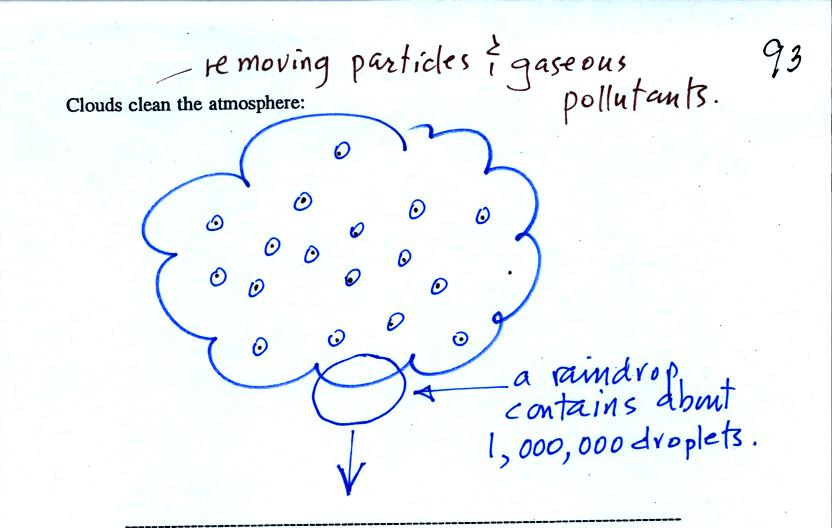 — removing particles & gaseous
93
pollutants.
Clouds clean the atmosphere:
a raindrop
contains about
1,000,000 droplets.